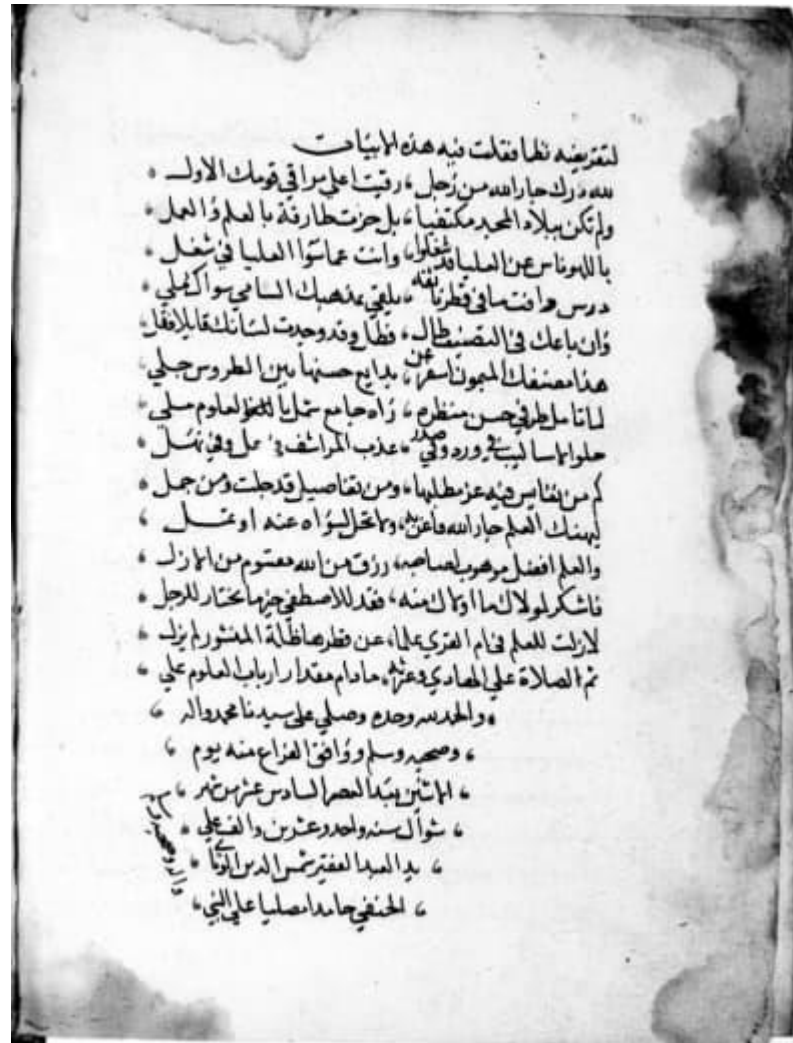 لتقريضه نظما فقلت فيه هذه الابيات
لله درك جار الله من رجل ، رقيت اعلي مراقي قومك الاول
ولم تكن ببلاد المجد مكتفيا ، بل حزت طارفة بالعلم والعمل
باللهو ناس عن العليا قد شغلوا ، وانت عما سوا العليا في شغل
درس وافت ما في قطرنا ، يلقي بمذهبك السامي سواك يملي
وان باعك في التصنيف طال ، فطل وقد وجدت لسانك قايلا فقل
هذا مصنفك الميمون اسفر عن ، بدايع حسنها بين الطروس جلي
لما تامل طرفي حسن منظره ، راه جامع شمل بالعلوم ملي
حلو الاساليب في ورد وفي صدر ، عذب المراشف في عل وفي نهل
كم من نفايس فيه عز مطلبها ، ومن تفاصيل قد جلت ومن جمل
ليهنك العلم جار الله فاغن به ، ولا تحل لسواه عنه او تمل
والعلم افضل موهوب لصاحبه ، رزق من الله مقسوم من الازل
فاشكر لمولاك ما اولاك منه ، فقد للاصطفي خير ما يختار للرجل
لازلت للعلم في ام القري علما ، عن قطرها ظلة المنشور لم يزل
ثم الصلاة علي الهادي وعترته ، مادام مقدار ارباب العلوم علي
والحمد لله وحده وصلي علي سيدنا محمد واله
وصحبه وسلم ووافق الفراغ منه يوم
الاثنين بعد العصر السادس عشر من شهر
شوال سنه واحد وعشرين والف علي
يد العبد الفقير شمس الدين
الحنفي حامدا مصليا علي النبي
واله وصحبه